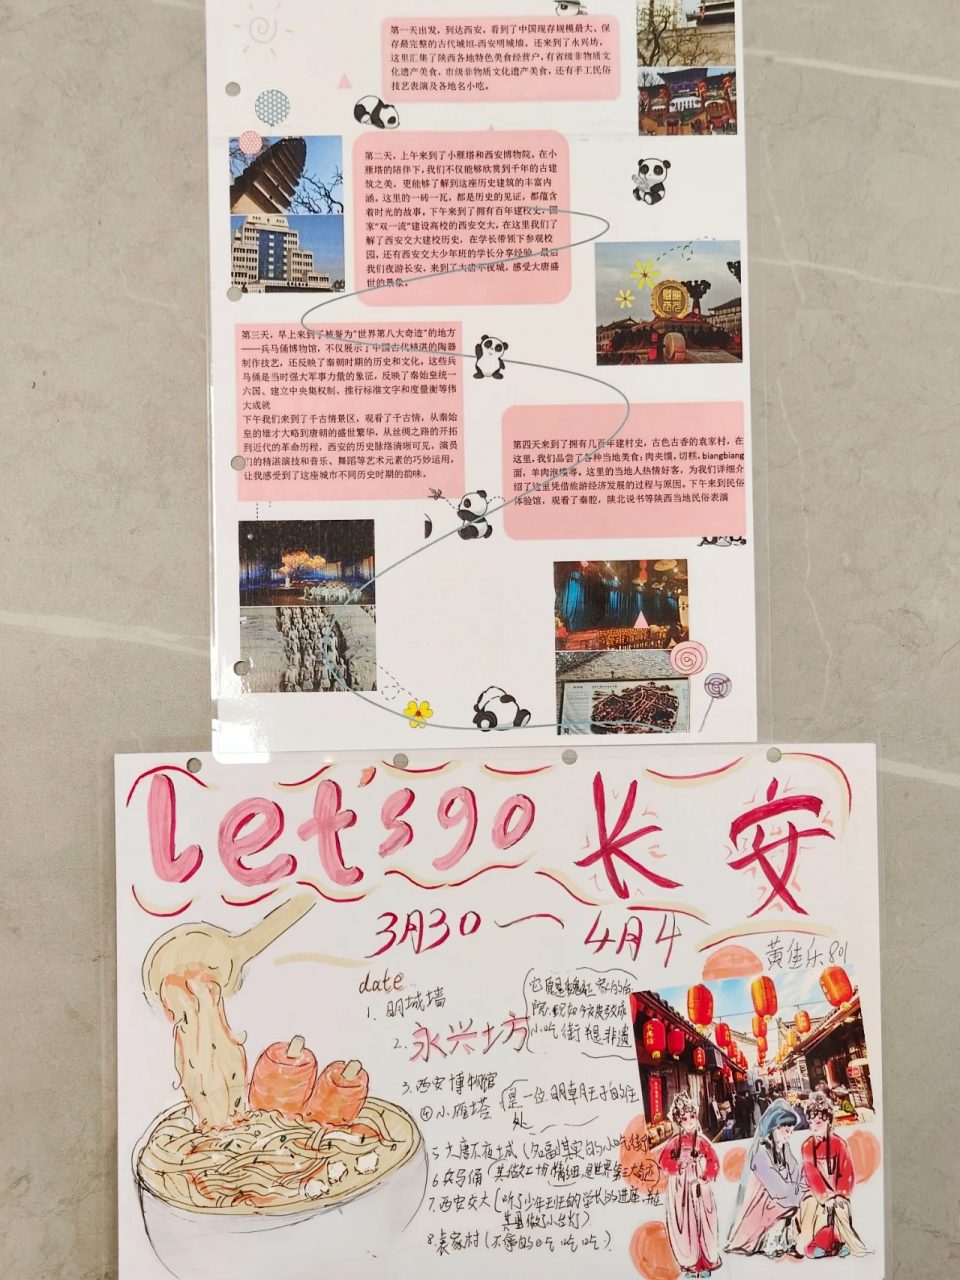 第一天出发，到达西安，看到了中国现存规模最大、保
存最完整的古代城垣-西安明城墙，还来到了永兴坊，
这里汇集了陕西各地特色美食经营户，有省级非物质文
化遗产美食，市级非物质文化遗产美食，还有手工民俗
技艺表演及各地名小吃。
第二天，上午来到了小雁塔和西安博物院，在小
雁塔的陪伴下，我们不仅能够欣赏到千年的古建
筑之美，更能够了解到这座历史建筑的丰富内
涵，这里的一砖一瓦，都是历史的见证，都蕴含
着时光的故事，下午来到了拥有百年建校史，国
家“双一流”建设高校的西安交大，在这里我们了
解了西安交大建校历史，在学长带领下参观校
园，还有西安交大少年班的学长分享经验，最后
我们夜游长安，来到了大唐不夜城，感受大唐盛
世的景象。
第三天，早上来到了被誉为“世界第八大奇迹”的地方
——兵马俑博物馆，不仅展示了中国古代精湛的陶器
制作技艺，还反映了秦朝时期的历史和文化，这些兵
马俑是当时强大军事力量的象征，反映了秦始皇统一
六国、建立中央集权制、推行标准文字和度量衡等伟
大成就
下午我们来到了千古情景区，观看了千古情，从秦始
皇的雄才大略到唐朝的盛世繁华，从丝绸之路的开拓
到近代的革命历程，西安的历史脉络清晰可见，演员
们的精湛演技和音乐、舞蹈等艺术元素的巧妙运用，
让我感受到了这座城市不同历史时期的韵味。
第四天来到了拥有几百年建村史，古色古香的袁家村，在
这里，我们品尝了各种当地美食：肉夹馍，切糕，biangbiang
面，羊肉泡馍等，这里的当地人热情好客，为我们详细介
绍了这里凭借旅游经济发展的过程与原因。下午来到民俗
体验馆，观看了秦腔，陕北说书等陕西当地民俗表演
let's go 长安
3月30 — 4月4
黄佳乐801
date
1. 明城墙
2. 永兴坊
小吃街 非遗
3. 西安博物馆
④小雁塔 是一位 的住
处
5. 大唐不夜城（名副其实的小吃街）
6. 兵马俑（其做工切精细,是世界第
7. 西安交大（听了少年班的学长的讲座
做了小台灯）
8. 袁家村（不停的吃吃吃）